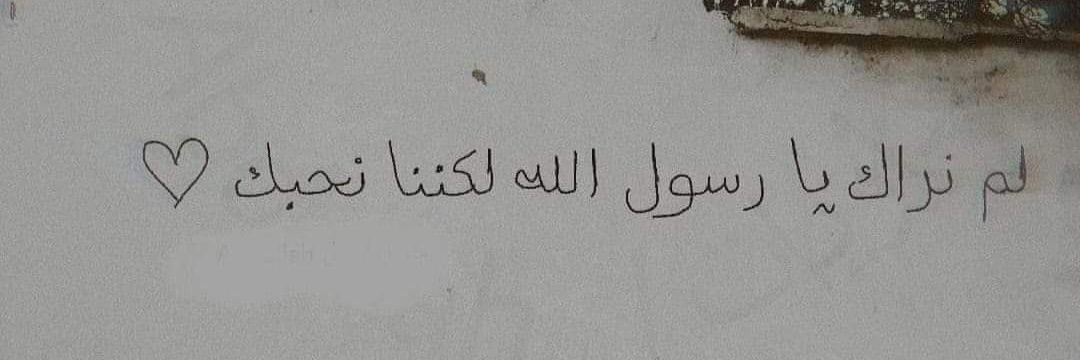 لم نراك يا رسول الله لكننا نحبك ♡